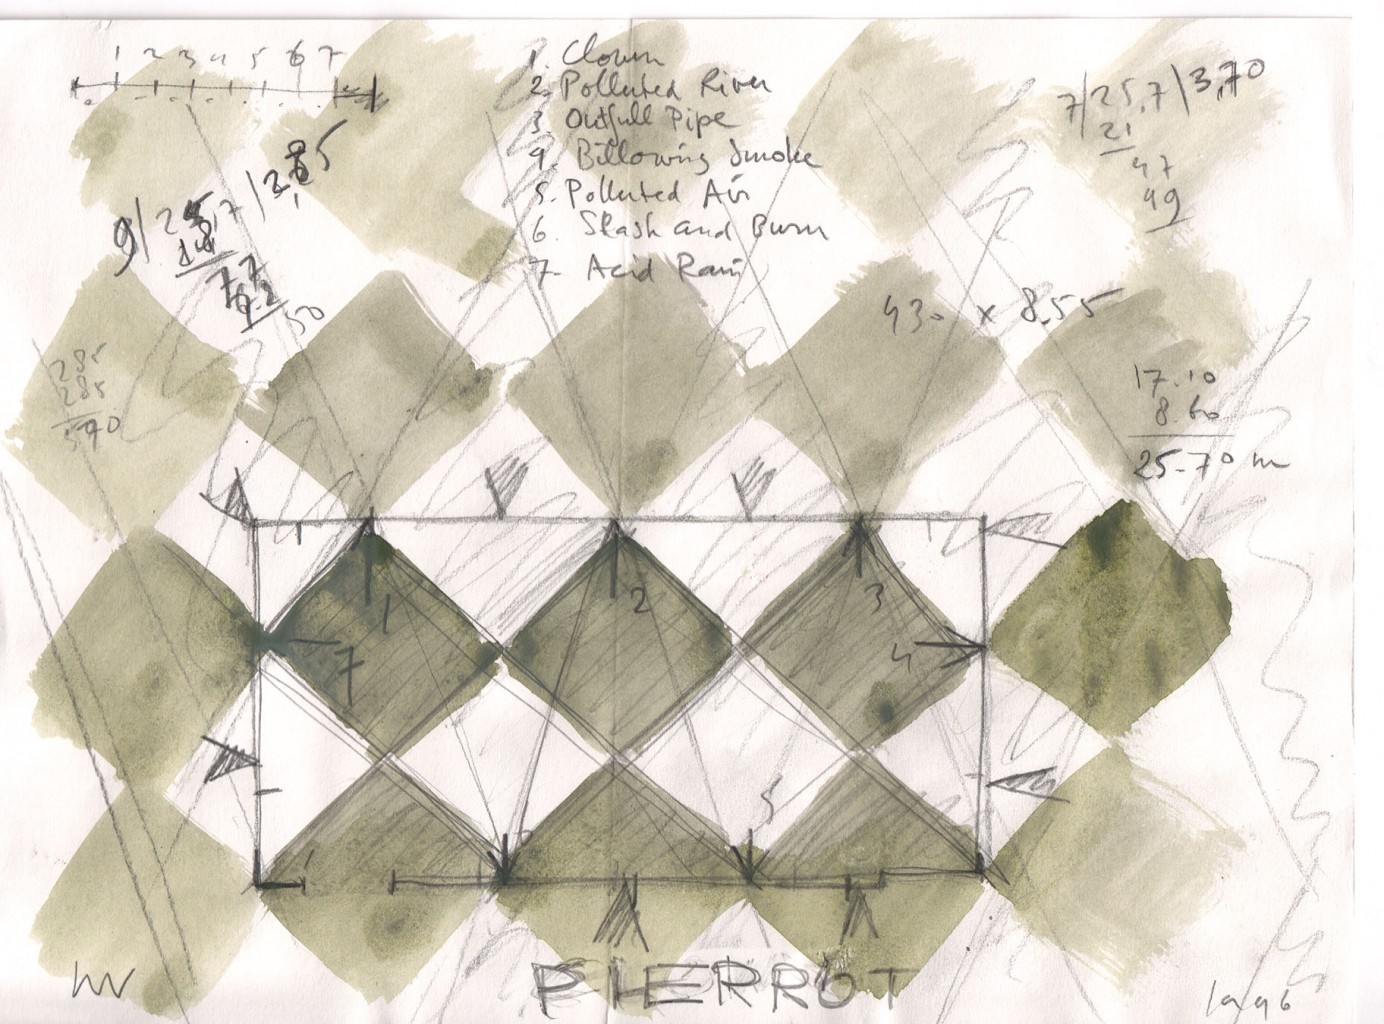 1 2 3 4 5 6 7
1. Clown
2. Polluted River
3 Outfull Pipe
4. Billowing Smoke
5. Polluted Air
6. Slash and Burn
7. Acid Rain
7/25,7\3,70
21
47
49
50
430 x 8.55
285
285
570
17.10
8.60
25.70 m
1
2
3
4
7
5
PIERROT
1996